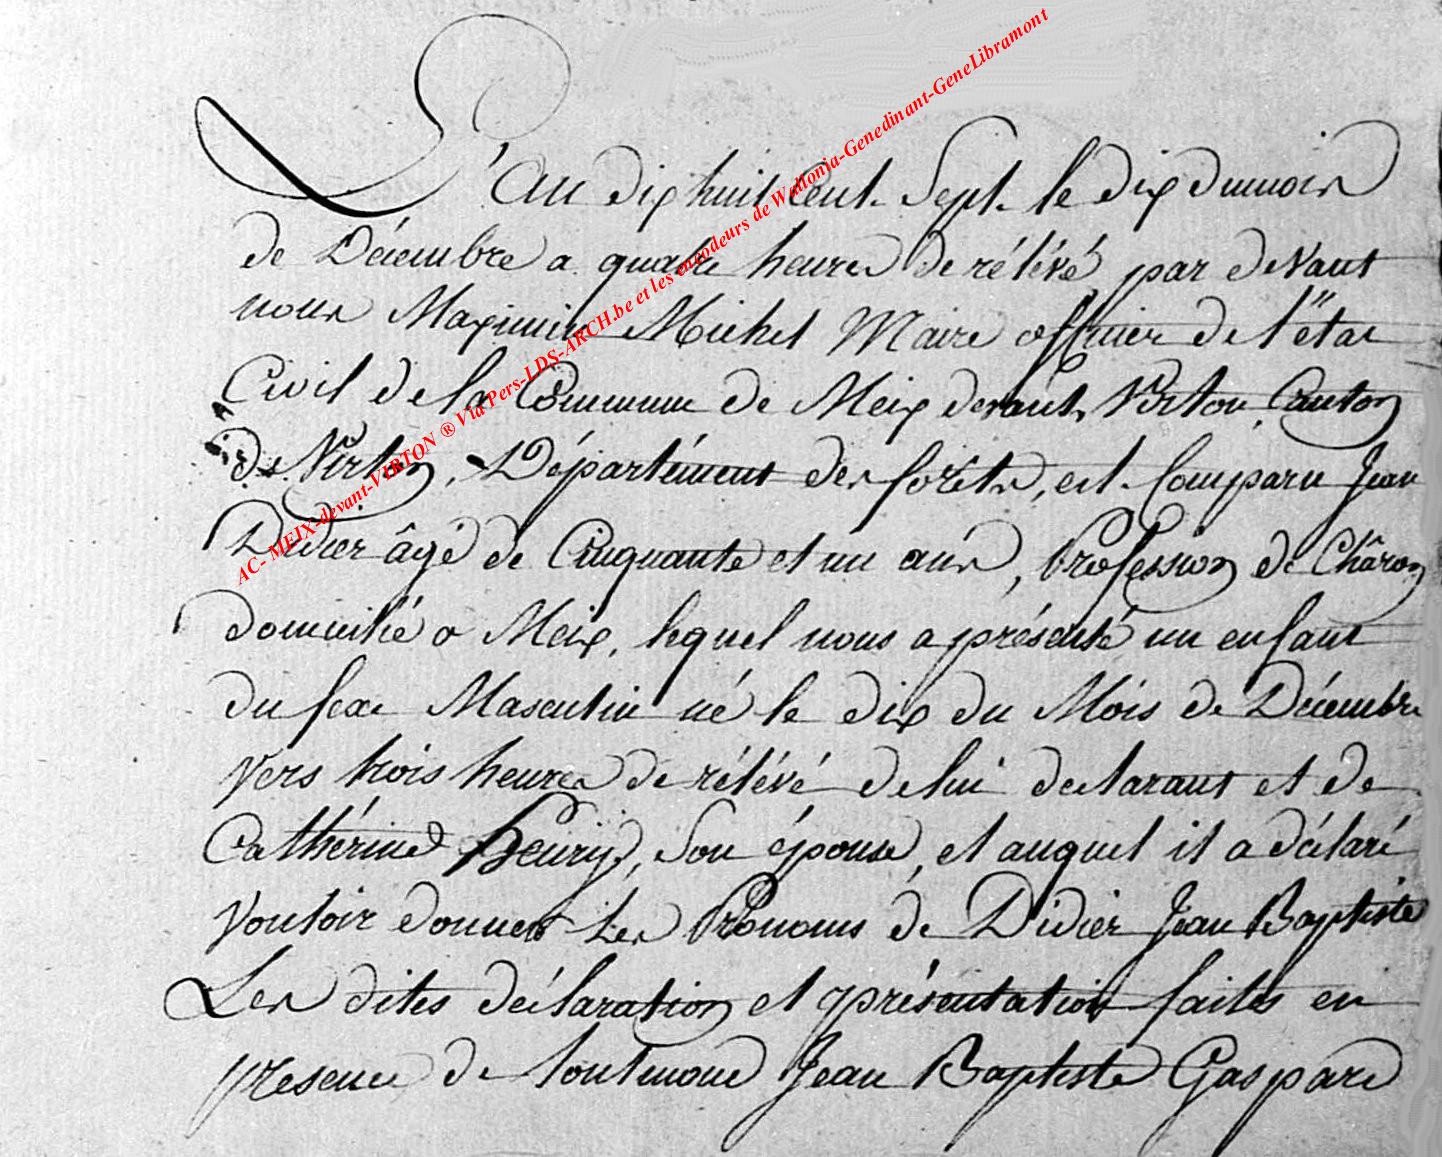 L'An dix huit Cent Sept le dix du mois
de Décembre a quatre heures de rélévé, par devant
nous Maximin Michel Maire officier de l'état
Civil de la Commune de Meix devant Virton, Canton
de Virton, Département des forêts, est Comparu Jean
Didier âgé de Cinquante et un ans, Profession de Châron
domicilié a Meix, lequel nous a présenté un enfant
du sexe Masculin né le dix du Mois de Décembre
vers trois heures de rélévé de lui declarant et de
Cathérine Henry, Son épouse, et auquel il a déclaré
vouloir donner Les Prénoms de Didier Jean Baptiste
Les dites déclaration et présentation faites en
présence de Jean Baptiste Gaspard
AC- MEIX-devant-VIRTON ® Via Pers-LDS-ARCH.be et les encodeurs de Wallonia-Genedinant-GeneLibramont